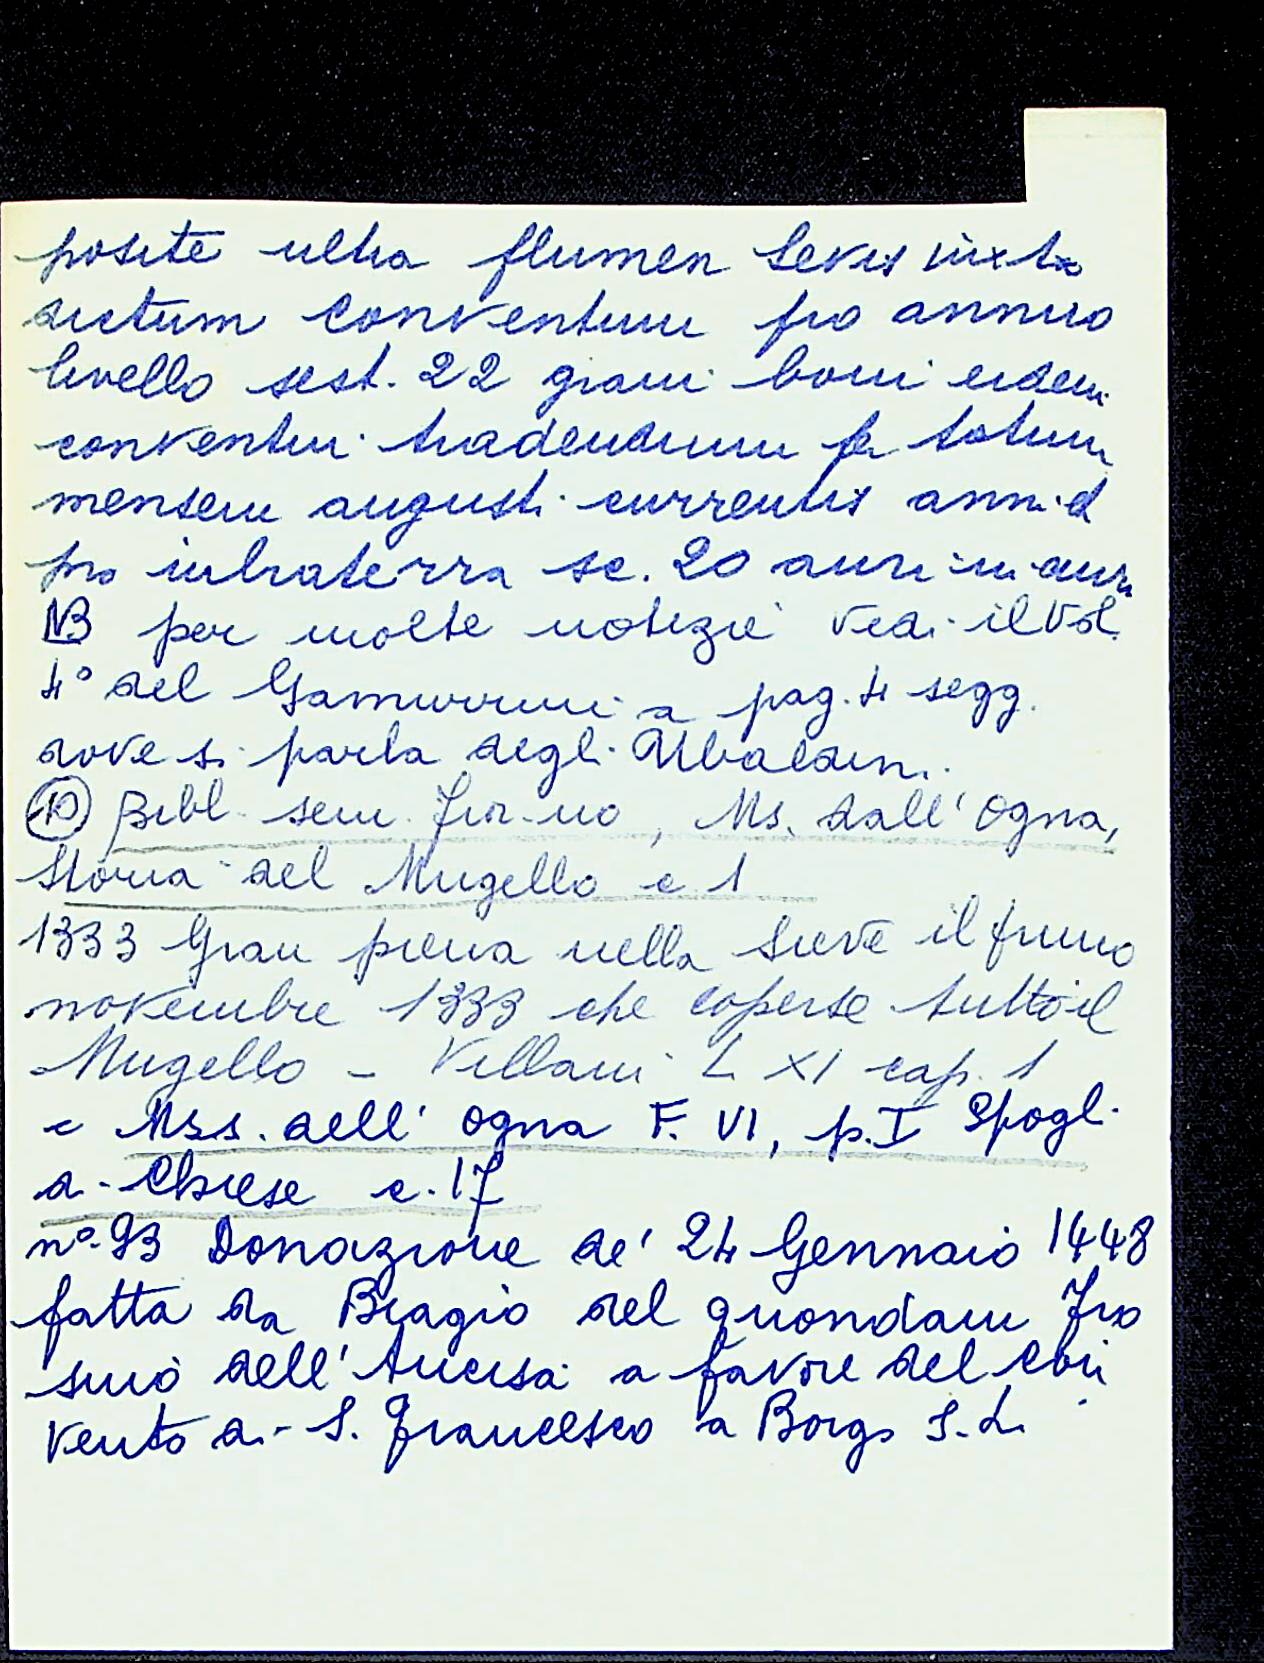 posite ultra flumen Sevis iuxta
dictum conventum pro annuo
livello sest. 22 grani boni eidem
conventui tradendum per totum
mensem augusti currentis anni et
pro intraterra sc. 20 auri in auri
NB per molte notizie vedi il Vol.
4° del Gamurrini a pag. 4 segg.
dove si parla degli Ubaldini.
(10) Bibl. sem. Fior-no, Ms. dall'Ogna,
Storia del Mugello c 1
1333 Gran piena nella Sieve il primo
novembre 1333 che coperse tutto il
Mugello - Villani L XI cap. 1
e Mss. dell'Ogna F. VI, p. I Spogli
di Chiese c. 17
n° 93 Donazione de' 24 Gennaio 1448
fatta da Biagio del quondam Fro
sino dell'Ancisa a favore del Con
vento di S. Francesco a Borgo S. L.